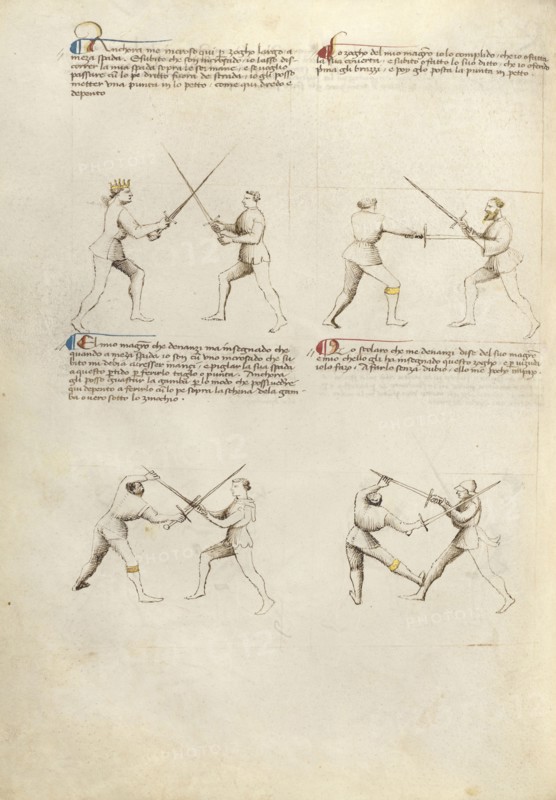 Anchora me incroso qui per zogho largo a
meza spada. E subito che son incrosado io lasso dis-
correr la mia spada sopra le soi mane, e se voglio
passare cum lo pe dritto fuora de strada, io gli posso
metter una punta in lo petto, come qui dredo e
depento
Lo zogho del mio magistro io l'o complido, ch'e io o fatta
la sua coverta, e subito o fatto lo suo ditto, che io o ferido
prima gli brazzi, e poy gl'o posta la punta in petto.
El mio magistro che denanzi m'a insegnado che
quando a meza spada io son cum uno incrosado che su-
bito mi debia acresser inanzi, e piglar la sua spada
a questo partido per ferirlo taglo o punta. Anchora
gli posso guastar la gamba per lo modo che possi vedere
qui depento a ferirlo cum lo pe sopra la schena dela gam-
ba overo sotto lo zinochio.
Lo scolaro che me denanzi dise del suo magistro
e mio ch'ello gli ha insegnado questo zogho, e per
io lo fazo. A farlo senza dubio, ello m'e pocho
PHOTO12